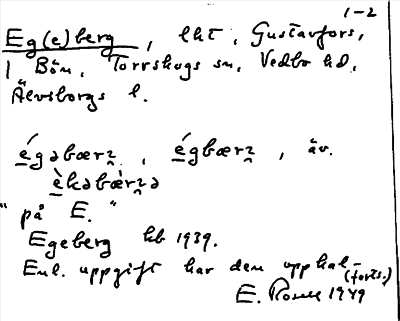 1-2
Eg(e)berg, lht, Gustavfors,
i Bön, Torrskogs sn, Vedbo hd,
Älvsborgs l.
é̱gəbærz̨, é̱gbærz̨, äv.
è̱kəbæ̀rz̨ə
"på E."
Egeberg hb 1939.
Enl. uppgift har den upphal
(forts.)
E. 1949